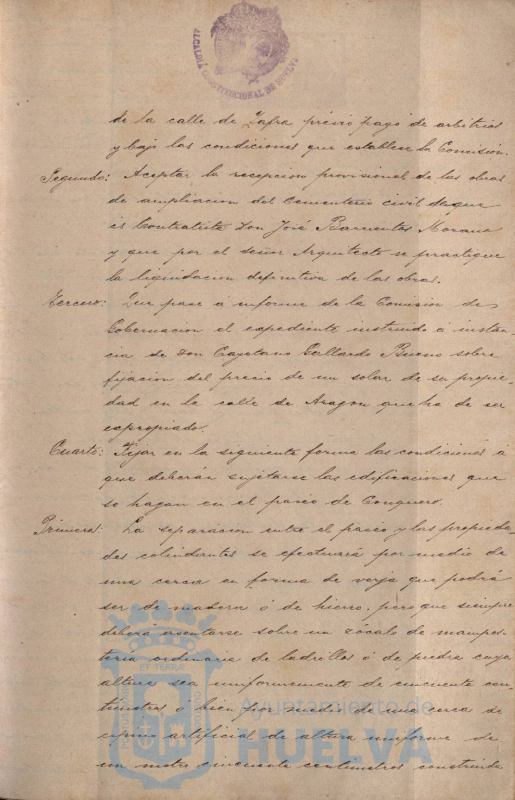 ALCALDIA CONSTITUCIONAL DE HUELVA
de la calle de Zafra prévio pago de arbitrios
y bajo las condiciones que establece la Comisión.
Segundo: Aceptar la recepcion provisional de las obras
de ampliacion del Cementerio civil de que
es Contratista Don José Barrientos Morano
y que por el señor Arquitecto se practique
la liquidacion definitiva de las obras.
Tercero: Que pase á informe de la Comision de
Gobernacion el expediente instruido á instan-
cia de Don Cayetano Gallardo Bueno sobre
fijacion del precio de un solar de su propie-
dad en la calle de Aragon que ha de ser
expropiado.
Cuarto: Fijar en la siguiente forma las condiciones á
que deberán sujetarse las edificaciones que
se hagan en el paseo de Conquero.
Primera: La separacion entre el paseo y las propieda-
des colindantes se efectuará por medio de
una cerca en forma de verja que podrá
ser de madera ó de hierro, pero que siempre
deberá asentarse sobre un zócalo de mampos-
teria ordinaria de ladrillos ó de piedra cuya
altura sea uniformemente de cincuenta cen-
tímetros ó bien por medio de una cerca de
artificial de altura uniforme de
un metro cincuenta centimetros construida
Ayuntamiento de
HUELVA